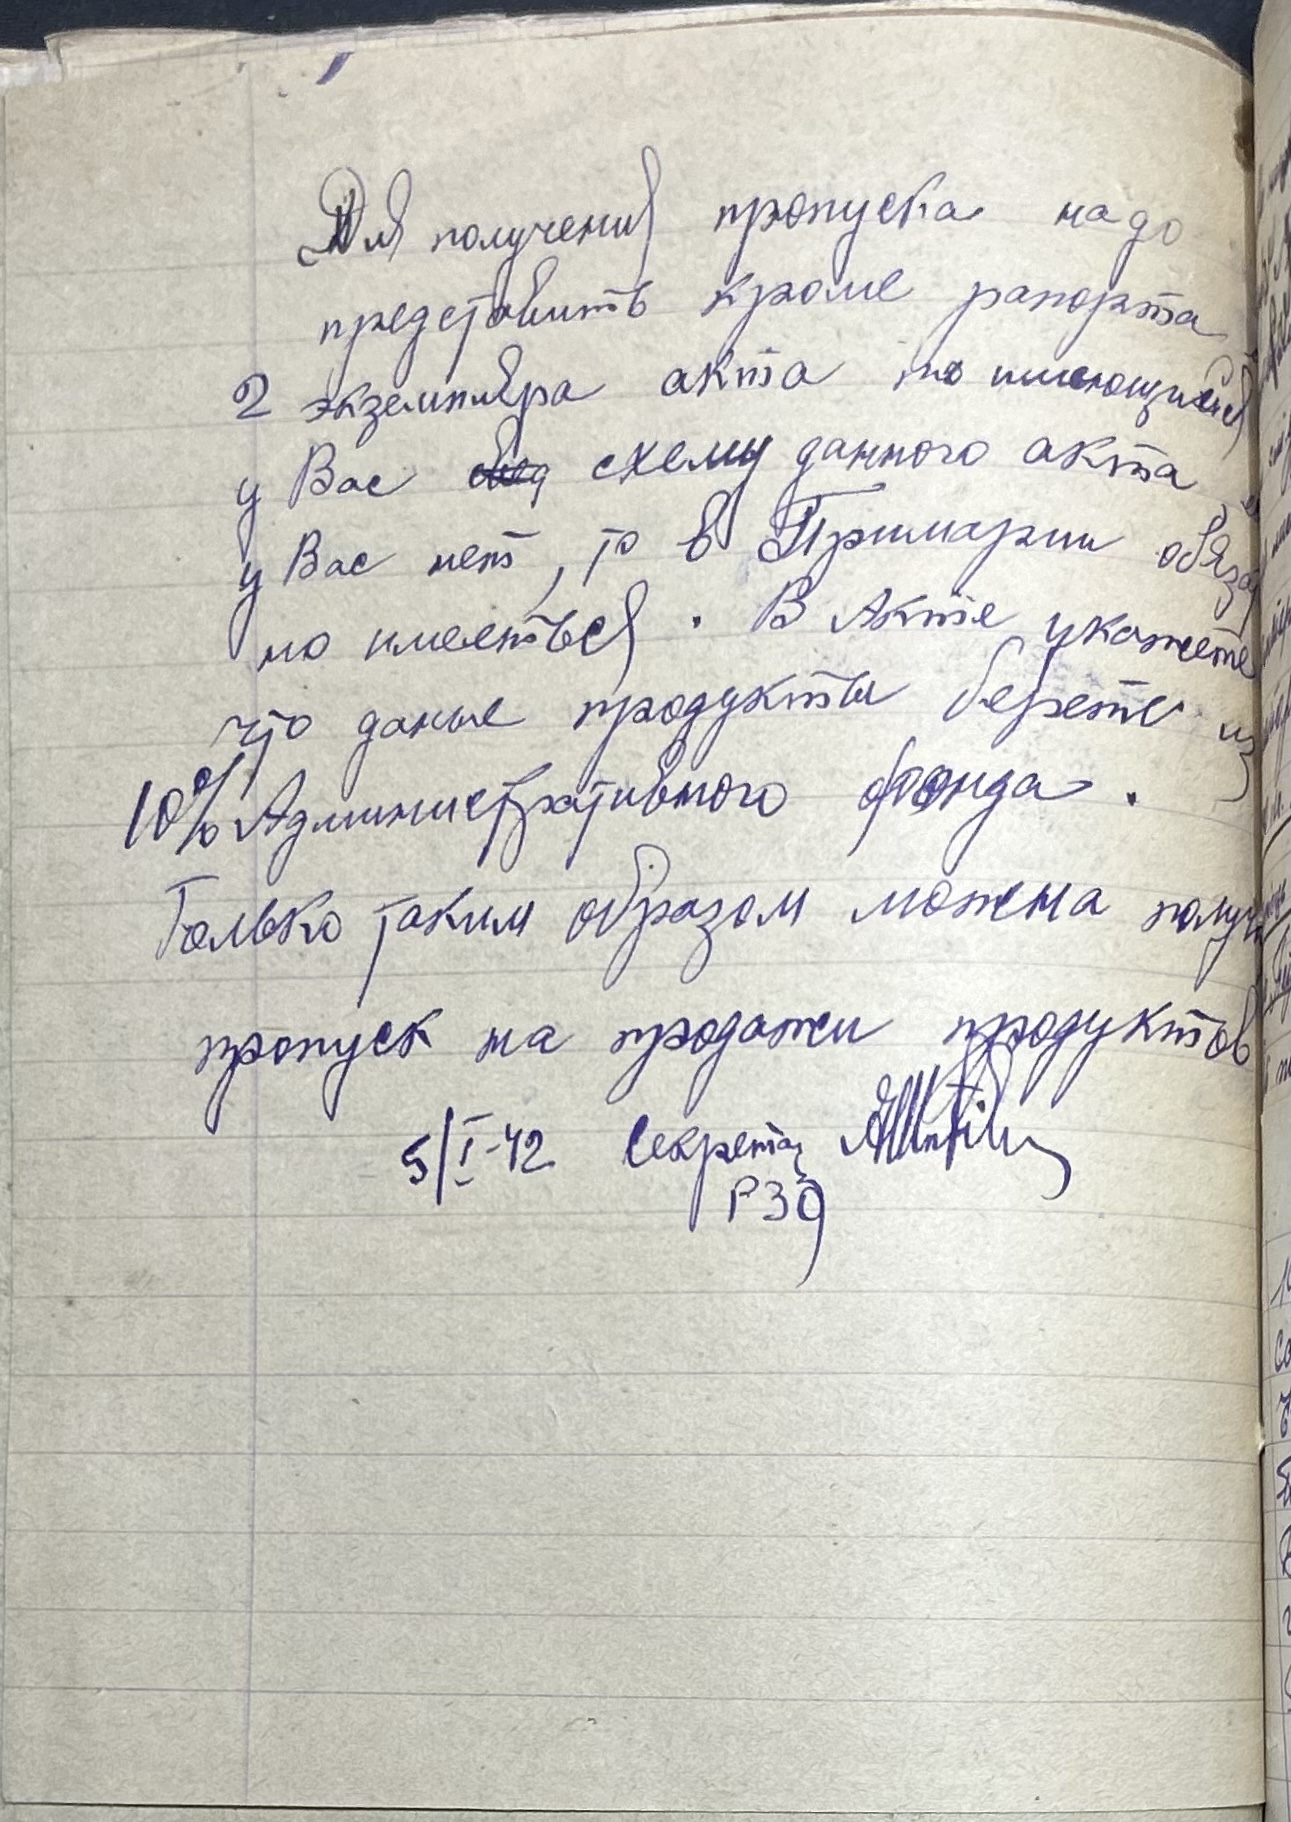 Для получения пропуска надо
представить кроме рапорта
2 экземпляра акта по имеющийся
у Вас схему данного акта
у Вас нет, то в Примарии обяза
но имееться. В Акте укажете
что даные продукты берете из
10% Административного фонда.
Только таким образом можна получ
пропуск на продажи продуктов
5/I-42 Секретар
РЗО